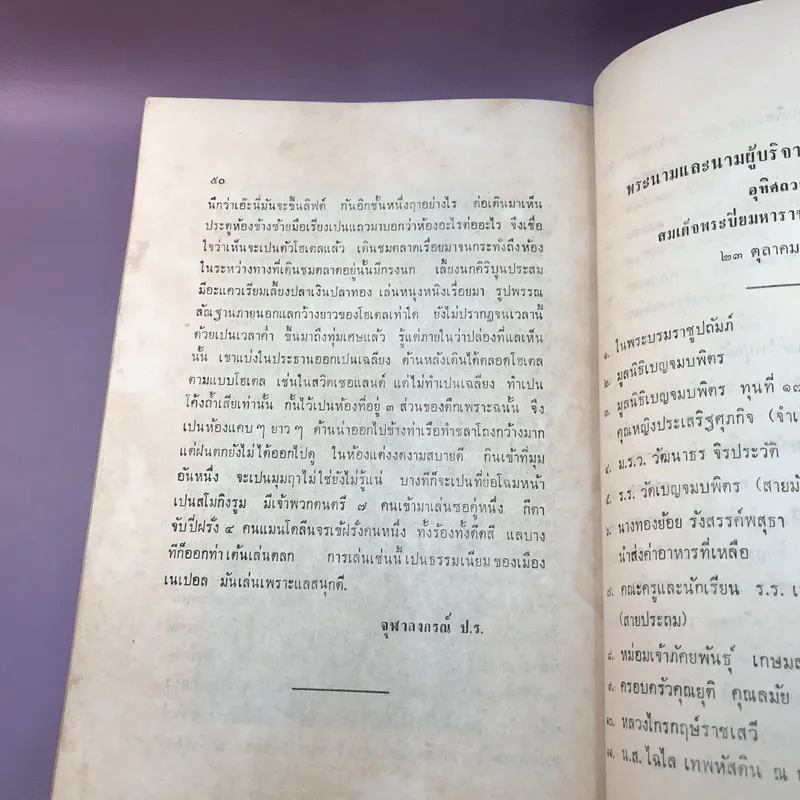 ๕๐
นึกว่าเอ๊ะนี่มันจะขึ้นลิฟต์ กันอีกชั้นหนึ่งฤาอย่างไร ต่อเดินมาเห็น
ประตูห้องข้างซ้ายมือเรียงเปนแถวมาบอกว่าห้องอะไรต่ออะไร จึงเชื่อ
ใจว่าเห็นจะเปนตัวโฮเตลแล้ว เดินชมตลาดเรื่อยมาจนกระทั่งถึงห้อง
ในระหว่างทางที่เดินชมตลาดอยู่นั้นมีกรงนก เลี้ยงนกคิริบูนประสม
มีอะแควเรียมเลี้ยงปลาเงินปลาทอง เล่นหนุงหนิงเรื่อยมา รูปพรรณ
สัณฐานภายนอกแลกว้างยาวของโฮเตลเท่าใด ยังไม่ปรากฏจนเวลานี้
ด้วยเปนเวลาค่ำ ขึ้นมาถึงทุ่มเศษแล้ว รู้แต่ภายในว่าปล่องที่แลเห็น
นั้น เขาแบ่งในประธานออกเปนเฉลียง ด้านหลังเดินได้ตลอดโฮเตล
ตามแบบโฮเตล เช่นในสวิตเซอแลนด์ แต่ไม่ทำเปนเฉลียง ทำเปน
โค้งถ้ำเสียเท่านั้น กั้นไว้เปนห้องที่อยู่ ๓ ส่วนของตึกเพราะฉนั้น จึง
เปนห้องแคบ ๆ ยาว ๆ ด้านน่าออกไปข้างท่าเรือทำชลาโถงกว้างมาก
แต่ฝนตกยังไม่ได้ออกไปดู ในห้องแต่งงดงามสบายดี กินเข้าที่มุม
อันหนึ่ง จะเปนมุมฤาไม่ใช่ยังไม่รู้แน่ บางทีก็จะเปนที่ย่อโฉมหน้า
เปนสโมกิงรูม มีเจ้าพวกดนตรี ๗ คนเข้ามาเล่นซอคู่หนึ่ง กีตา
จับปี่ฝรั่ง ๔ คนแมนโดลีนจรเข้ฝรั่งคนหนึ่ง ทั้งร้องทั้งดีดสี แลบาง
ทีก็ออกท่าเต้นเล่นตลก การเล่นเช่นนี้เปนธรรมเนียมของเมือง
เนเปอล มันเล่นเพราะแลสนุกดี.
จุฬาลงกรณ์ ป.ร.
พระนามและนามผู้บริจา
อุทิศถวา
สมเด็จพระปิยมหาราช
๒๓ ตุลาคม
๑. ในพระบรมราชูปถัมภ์
๒. มูลนิธิเบญจมบพิตร
๓. มูลนิธิเบญจมบพิตร ทุนที่ ๑๗
คุณหญิงประเสริฐศุภกิจ (จำเ
๔. ม.ร.ว. วัฒนาธร จิรประวัติ
๕. ร.ร. วัดเบญจมบพิตร (สายมั
๖. นางทองย้อย รังสรรค์พสุธา
นำส่งค่าอาหารที่เหลือ
๗. คณะครูและนักเรียน ร.ร. เ
(สายประถม)
๘. หม่อมเจ้าภัคยพันธุ์ เกษมส
๙. ครอบครัวคุณยุติ คุณสมัย
๑๐. หลวงไกรกฤษ์ราชเสวี
๑๑. น.ส. ไฉไล เทพหัสดิน ณ